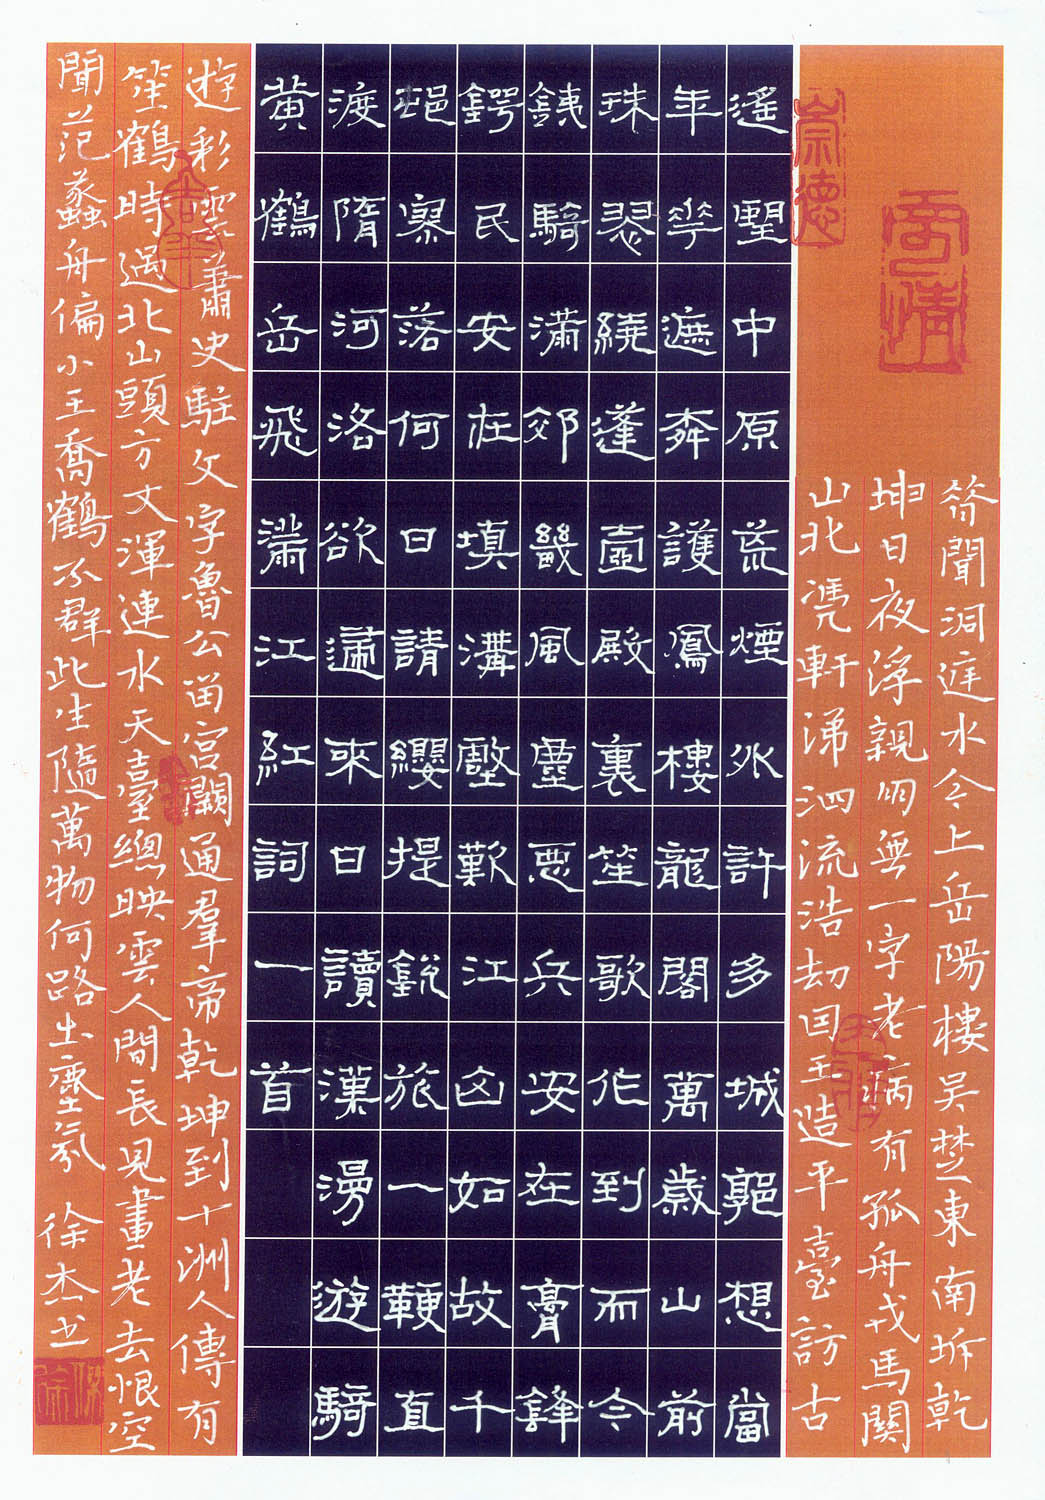 昔聞洞庭水今上岳陽樓吳楚東南坼乾
坤日夜浮親朋無一字老病有孤舟戎馬關
山北凭軒涕泗流浩劫因王造平臺訪古
遙望中原荒煙外許多城郭想當
年花遮護鳳樓龍閣萬歲山前
珠翠繞蓬壺殿裏笙歌作到而今
鐵騎滿郊畿風塵惡兵安在膏鋒
鍔民安在填溝壑歎江山如故千
邨寥落何日請纓提銳旅一鞭直
渡隋河洛欲遞來日讀漢漫遊騎
黃鶴岳飛滿江紅詞一首
遊彩雲蕭史駐文字魯公留宮闕通羣帝乾坤到十洲人傳有
笙鶴時過北山頭方丈渾連水天臺總映雲人間長見畫老去恨空
聞范蠡舟偏小王喬鶴不群此生隨萬物何路出塵氛 徐杰书
崇德